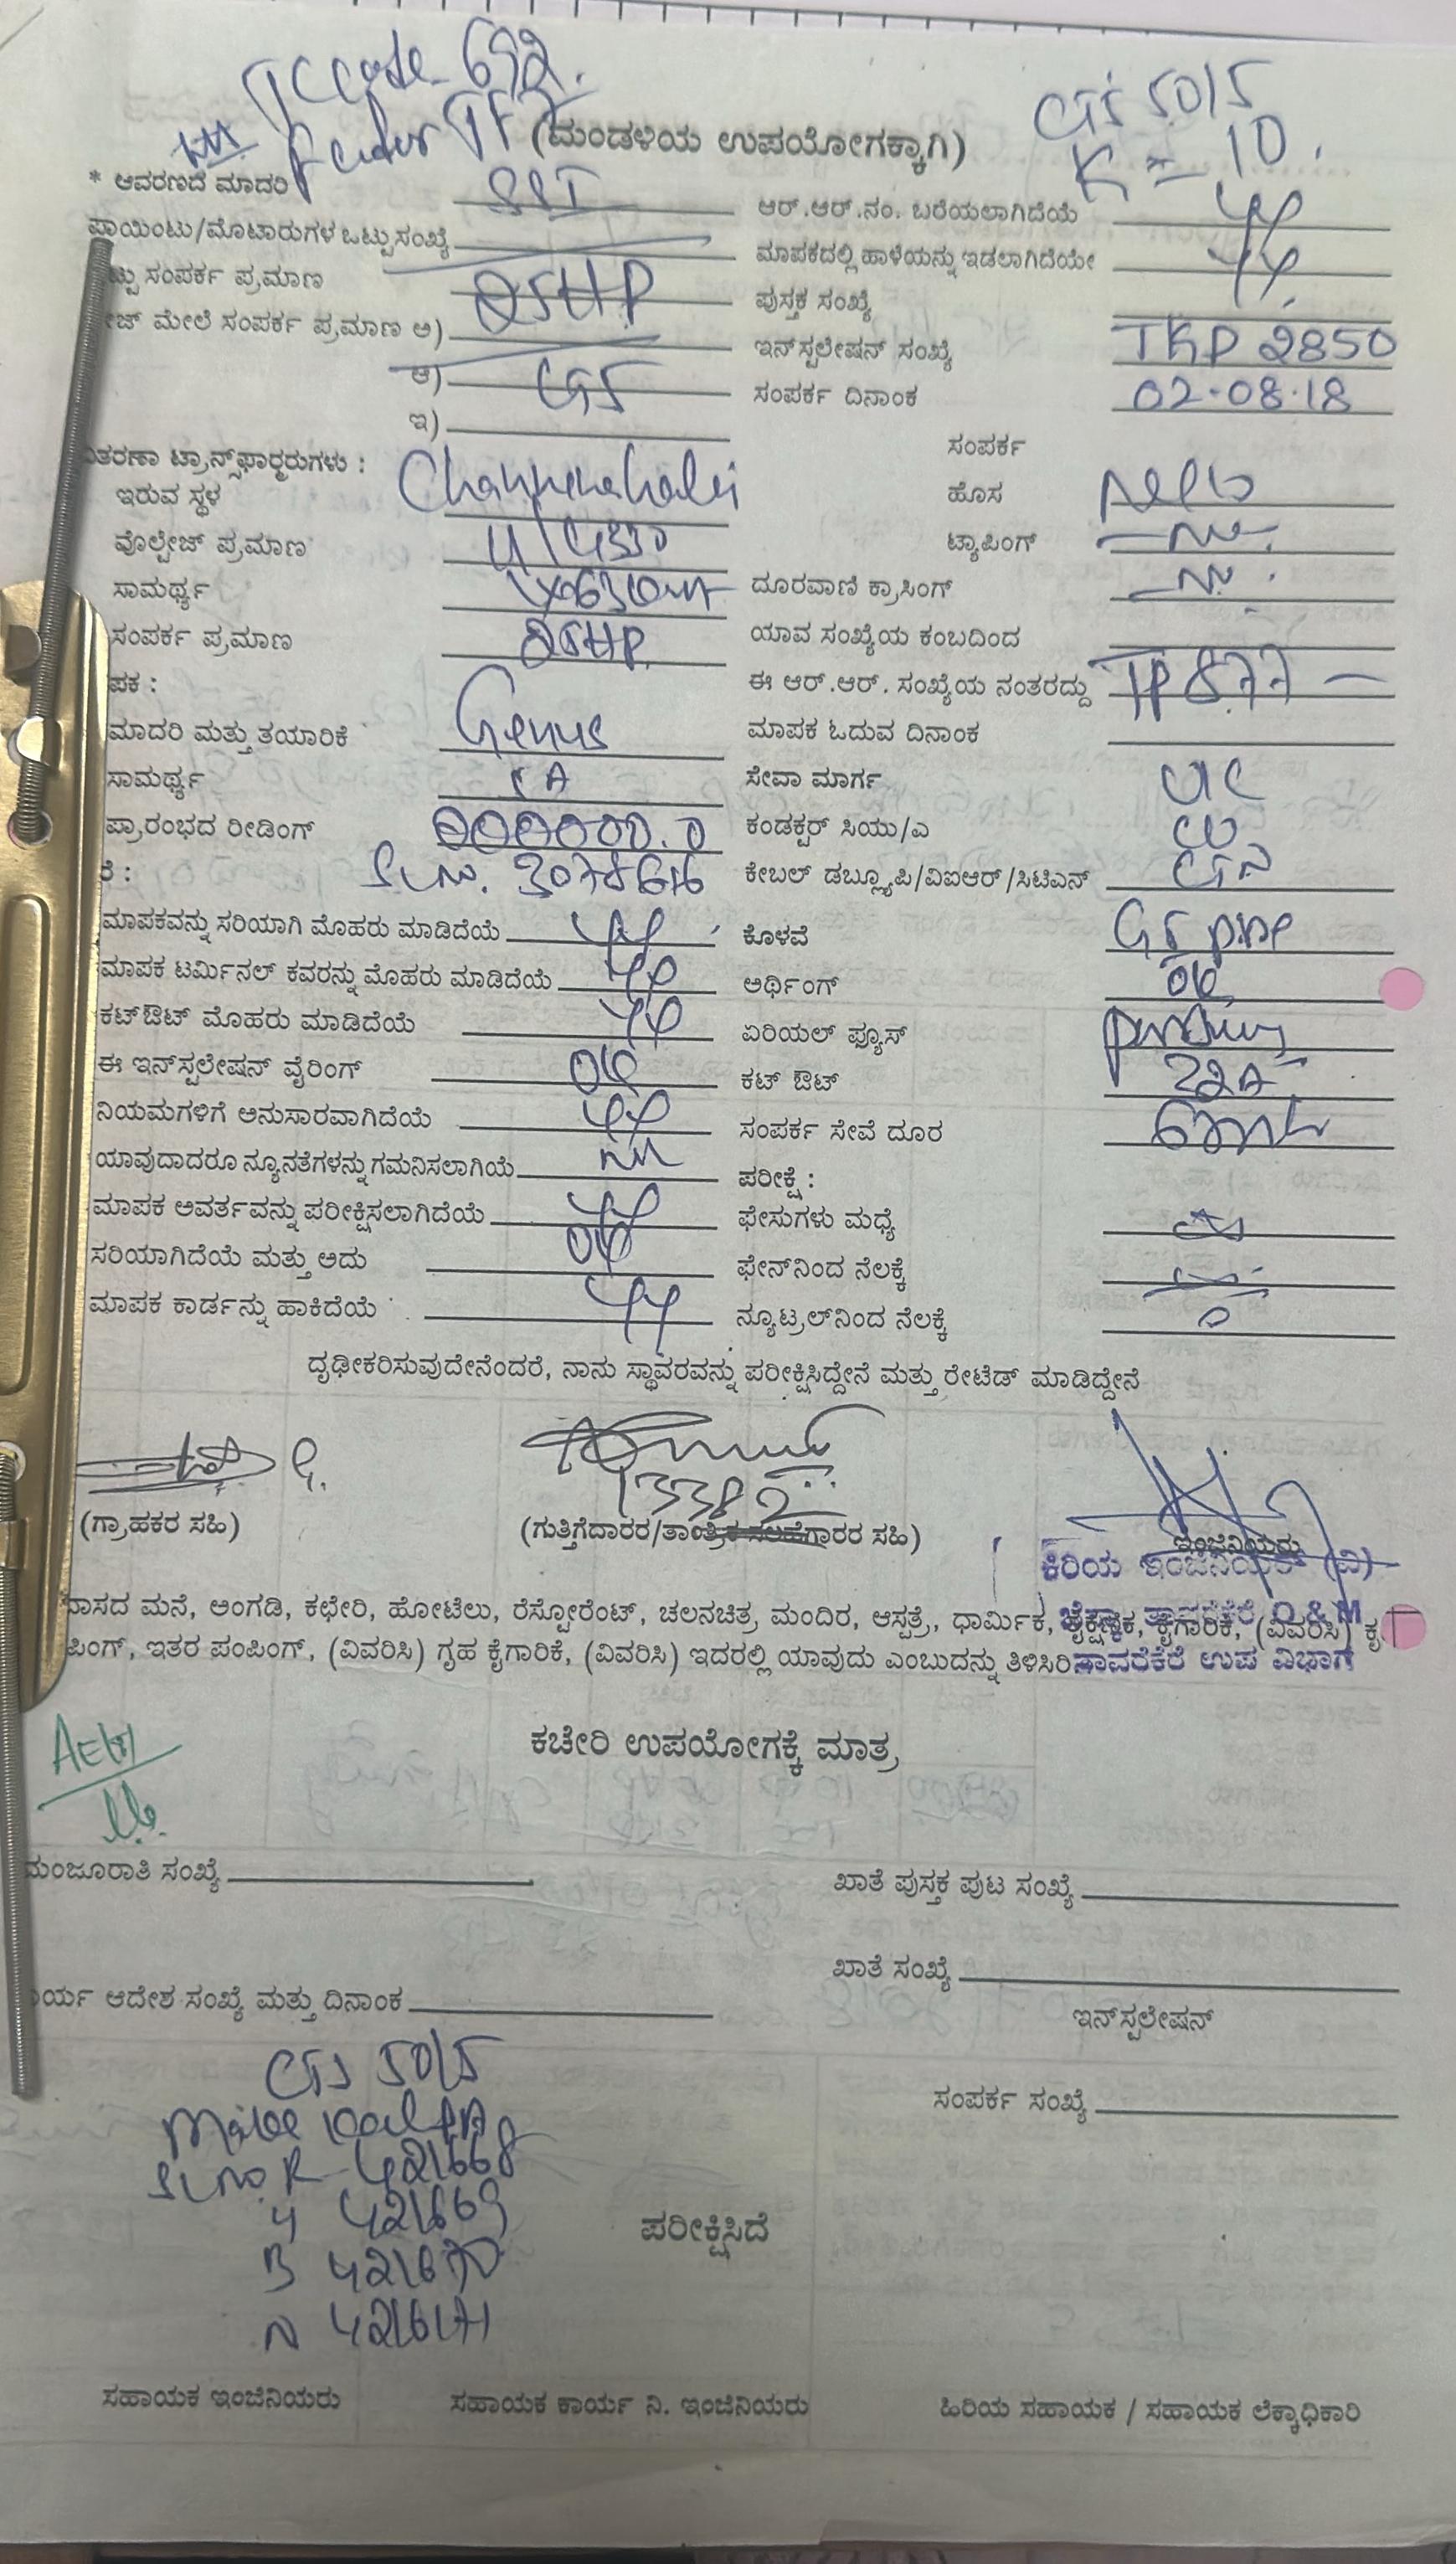 TC code - 692.
Feeder TF 7 CTS 50/5
(ಮಂಡಳಿಯ ಉಪಯೋಗಕ್ಕಾಗಿ) K = 10.
* ಆವರಣದ ಮಾದರಿ SSI ಆರ್.ಆರ್.ನಂ. ಬರೆಯಲಾಗಿದೆಯೆ
ಪಾಯಿಂಟು/ಮೊಟಾರುಗಳ ಒಟ್ಟು ಸಂಖ್ಯೆ ಮಾಪಕದಲ್ಲಿ ಹಾಳೆಯನ್ನು ಇಡಲಾಗಿದೆಯೇ
ಟ್ಟು ಸಂಪರ್ಕ ಪ್ರಮಾಣ 25HP ಪುಸ್ತಕ ಸಂಖ್ಯೆ
ೇಜ್ ಮೇಲೆ ಸಂಪರ್ಕ ಪ್ರಮಾಣ ಅ) ಇನ್‌ಸ್ಟಲೇಷನ್ ಸಂಖ್ಯೆ TKP 2850
ಆ) ಸಂಪರ್ಕ ದಿನಾಂಕ 02-08-18
ಇ)
ತರಣಾ ಟ್ರಾನ್ಸ್‌ಫಾರ್ಮರುಗಳು : ಸಂಪರ್ಕ
ಇರುವ ಸ್ಥಳ Channenahalli ಹೊಸ New
ವೊಲ್ಟೇಜ್ ಪ್ರಮಾಣ 11/433 ಟ್ಯಾಪಿಂಗ್
ಸಾಮರ್ಥ್ಯ ದೂರವಾಣಿ ಕ್ರಾಸಿಂಗ್
ಸಂಪರ್ಕ ಪ್ರಮಾಣ 25HP. ಯಾವ ಸಂಖ್ಯೆಯ ಕಂಬದಿಂದ
ಪಕ : ಈ ಆರ್.ಆರ್. ಸಂಖ್ಯೆಯ ನಂತರದ್ದು TP 877 —
ಮಾದರಿ ಮತ್ತು ತಯಾರಿಕೆ Genus ಮಾಪಕ ಓದುವ ದಿನಾಂಕ
ಸಾಮರ್ಥ್ಯ 5A ಸೇವಾ ಮಾರ್ಗ UC
ಪ್ರಾರಂಭದ ರೀಡಿಂಗ್ 000000.0 ಕಂಡಕ್ಟರ್ ಸಿಯು/ಎ CU
ರೆ : Sl no. 3078616 ಕೇಬಲ್ ಡಬ್ಲ್ಯೂಪಿ/ವಿಐಆರ್/ಸಿಟಿಎನ್
ಮಾಪಕವನ್ನು ಸರಿಯಾಗಿ ಮೊಹರು ಮಾಡಿದೆಯೆ ಕೊಳವೆ GI pipe
ಮಾಪಕ ಟರ್ಮಿನಲ್ ಕವರನ್ನು ಮೊಹರು ಮಾಡಿದೆಯೆ ಅರ್ಥಿಂಗ್ OK
ಕಟ್‌ಔಟ್ ಮೊಹರು ಮಾಡಿದೆಯೆ ಏರಿಯಲ್ ಫ್ಯೂಸ್
ಈ ಇನ್‌ಸ್ಟಲೇಷನ್ ವೈರಿಂಗ್ OK ಕಟ್ ಔಟ್ 32A
ನಿಯಮಗಳಿಗೆ ಅನುಸಾರವಾಗಿದೆಯೆ ಸಂಪರ್ಕ ಸೇವೆ ದೂರ
ಯಾವುದಾದರೂ ನ್ಯೂನತೆಗಳನ್ನು ಗಮನಿಸಲಾಗಿಯೆ ಪರೀಕ್ಷೆ :
ಮಾಪಕ ಅವರ್ತವನ್ನು ಪರೀಕ್ಷಿಸಲಾಗಿದೆಯೆ ಫೇಸುಗಳು ಮಧ್ಯೆ
ಸರಿಯಾಗಿದೆಯೆ ಮತ್ತು ಅದು OK ಫೇನ್‌ನಿಂದ ನೆಲಕ್ಕೆ
ಮಾಪಕ ಕಾರ್ಡನ್ನು ಹಾಕಿದೆಯೆ ನ್ಯೂಟ್ರಲ್‌ನಿಂದ ನೆಲಕ್ಕೆ 0
ದೃಢೀಕರಿಸುವುದೇನೆಂದರೆ, ನಾನು ಸ್ಥಾವರವನ್ನು ಪರೀಕ್ಷಿಸಿದ್ದೇನೆ ಮತ್ತು ರೇಟೆಡ್ ಮಾಡಿದ್ದೇನೆ
13382
(ಗ್ರಾಹಕರ ಸಹಿ) (ಗುತ್ತಿಗೆದಾರರ/ತಾಂತ್ರಿಕ ಸಲಹೆಗಾರರ ಸಹಿ) ಇಂಜಿನಿಯರು
ಕಿರಿಯ ಇಂಜಿನಿಯರ್ (ವಿ)
ವಾಸದ ಮನೆ, ಅಂಗಡಿ, ಕಛೇರಿ, ಹೋಟೆಲು, ರೆಸ್ಟೋರೆಂಟ್, ಚಲನಚಿತ್ರ, ಮಂದಿರ, ಆಸ್ಪತ್ರೆ, ಧಾರ್ಮಿಕ, ಶೈಕ್ಷಣಿಕ, ಕೈಗಾರಿಕೆ, (ವಿವರಿಸಿ) ಕೃ O & M
ಪಿಂಗ್, ಇತರ ಪಂಪಿಂಗ್, (ವಿವರಿಸಿ) ಗೃಹ ಕೈಗಾರಿಕೆ, (ವಿವರಿಸಿ) ಇದರಲ್ಲಿ ಯಾವುದು ಎಂಬುದನ್ನು ತಿಳಿಸಿರಿ ತಾವರೆಕೆರೆ ಉಪ ವಿಭಾಗ
ಕಚೇರಿ ಉಪಯೋಗಕ್ಕೆ ಮಾತ್ರ
ಮಂಜೂರಾತಿ ಸಂಖ್ಯೆ ಖಾತೆ ಪುಸ್ತಕ ಪುಟ ಸಂಖ್ಯೆ
ಖಾತೆ ಸಂಖ್ಯೆ
ರ್ಯ ಆದೇಶ ಸಂಖ್ಯೆ ಮತ್ತು ದಿನಾಂಕ ಇನ್‌ಸ್ಟಲೇಷನ್
CTS 50/5
ಸಂಪರ್ಕ ಸಂಖ್ಯೆ
Make
Sl no. R - 421668
Y 421669
ಪರೀಕ್ಷಿಸಿದೆ
B 421670
N 421671
ಸಹಾಯಕ ಇಂಜಿನಿಯರು ಸಹಾಯಕ ಕಾರ್ಯ ನಿ. ಇಂಜಿನಿಯರು ಹಿರಿಯ ಸಹಾಯಕ / ಸಹಾಯಕ ಲೆಕ್ಕಾಧಿಕಾರಿ